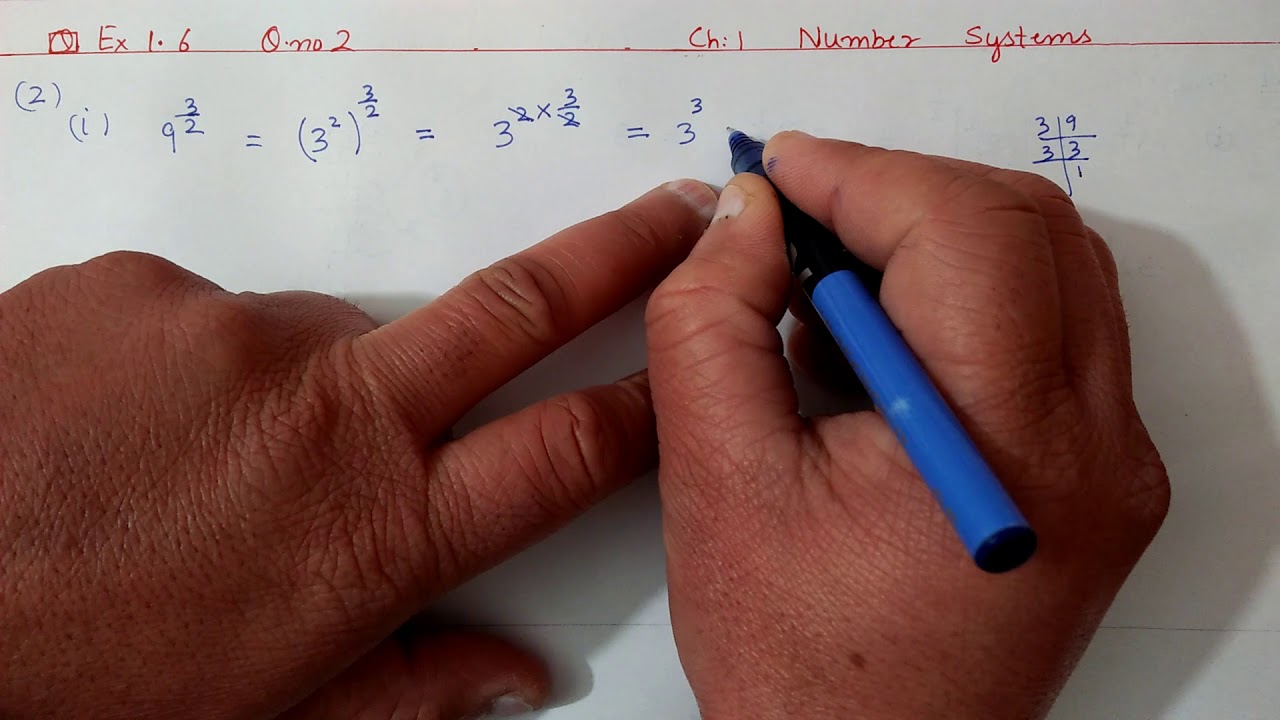 Q Ex 1.6 Q.no 2 Ch: 1 Number Systems
(2) (i) 9^(3/2) = (3²)^(3/2) = 3^(2×3/2) = 3³
3 | 9
3 | 3
1